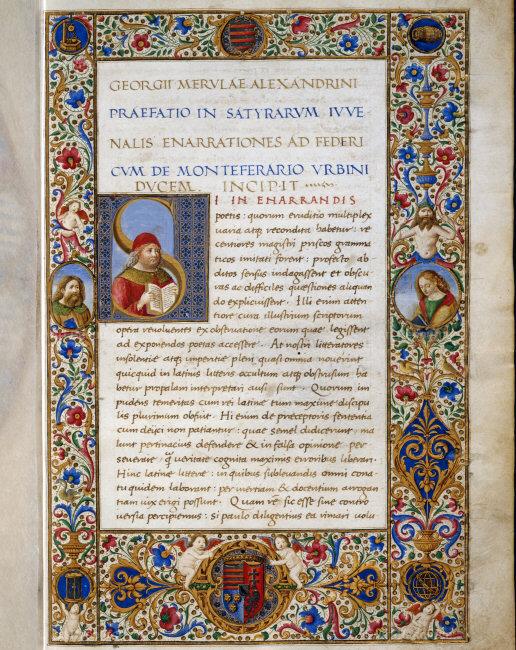 GEORGII MERVLAE ALEXANDRINI
PRAEFATIO IN SATYRARVM IVVE
NALIS ENARRATIONES AD FEDERI
CVM DE MONTEFERARIO VRBINI
DVCEM. INCIPIT
SI IN ENARRANDIS
poetis: quorum eruditio multiplex
uaria atq; recondita habetur: re
centiores magistri priscos gramma
ticos imitati forent: profecto ab
ditos sensus indagassent et obscu
ras ac difficiles quaestiones aliquan
do explicuissent. Illi enim atten
tiore cura illustrium scriptorum
opera reuoluentes ex obseruatione eorum quae legissent
ad exponendos poetas accessere. At nostri litteratores
insolentiae atq; impertiae pleni quasi omnia nouerint
quicquid in latinis litteris occultum atq; obstrusum ha
betur propalam interpretari ausi sunt. Quorum im
pudens temeritas cum rei latinae tum maxime discipu
lis plurimum obfuit. Hi enim de praeceptoris sententia
cum deiici non patiantur: quae semel didicerunt, ma
lunt pertinacius defendere & in falsa opinione per
seuerare q̃ ueritate cognita maximis erroribus liberari.
Hinc latinae litterae: in quibus subleuandis omni cona
tu quidem laborant: per inertiam & docentium arrogan
tiam uix erigi possunt. Quam rem sic esse sine contro
uersia percipiemus: si paulo diligentius ea rimari uolu